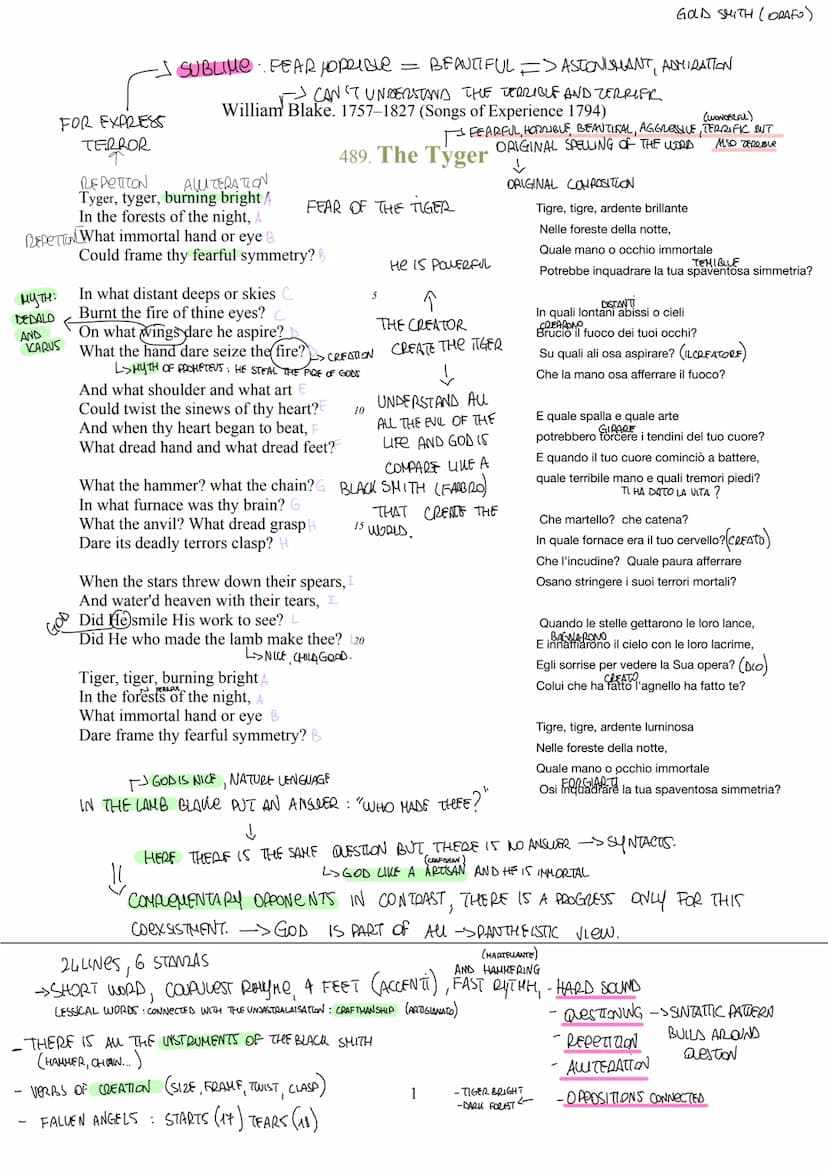 GOLD SMITH (ORAFO)
SUBLIME : FEAR HORRIBLE = BEAUTIFUL => ASTONISHMANT, ADMIRATION
CAN'T UNDERSTAND THE TERRIBLE AND TERRIFIC
William Blake. 1757–1827 (Songs of Experience 1794)
FOR EXPRESS
TERROR
(WONDERFUL)
FEARFUL, HORRIBLE, BEAUTIFAL, AGGRESSIVE, TERRIFIC BUT
ORIGINAL SPELLING OF THE WORD ALSO TERRIBLE
489. The Tyger
ORIGINAL COMPOSITION
REPETITION ALLITERATION
Tyger, tyger, burning bright A
In the forests of the night, A
REPETITION What immortal hand or eye B
Could frame thy fearful symmetry? B
FEAR OF THE TIGER
HE IS POWERFUL
MYTH:
DEDALO
AND
ICARUS
In what distant deeps or skies C 5
Burnt the fire of thine eyes? C
On what wings dare he aspire? D
What the hand dare seize the fire? D
CREATION
MYTH OF PROMETEUS : HE STEAL THE FIRE OF GODS
THE CREATOR
CREATE THE TYGER
And what shoulder and what art E
Could twist the sinews of thy heart? F 10
And when thy heart began to beat, F
What dread hand and what dread feet? F
UNDERSTAND ALL
ALL THE EVIL OF THE
LIFE AND GOD IS
COMPARE LIKE A
BLACK SMITH (FABBRO)
THAT CREATE THE
WORLD.
What the hammer? what the chain? G
In what furnace was thy brain? G
What the anvil? What dread grasp H 15
Dare its deadly terrors clasp? H
When the stars threw down their spears, I
And water'd heaven with their tears, I
GOD Did He smile His work to see? L
Did He who made the lamb make thee? L 20
NICE, CHILD, GOOD.
Tiger, tiger, burning bright A
In the forests of the night, A
What immortal hand or eye B
Dare frame thy fearful symmetry? B
Tigre, tigre, ardente brillante
Nelle foreste della notte,
Quale mano o occhio immortale
TEMIBILE
Potrebbe inquadrare la tua spaventosa simmetria?
DISTANTI
In quali lontani abissi o cieli
CREARONO
Bruciò il fuoco dei tuoi occhi?
Su quali ali osa aspirare? (IL CREATORE)
Che la mano osa afferrare il fuoco?
E quale spalla e quale arte
GIRARE
potrebbero torcere i tendini del tuo cuore?
E quando il tuo cuore cominciò a battere,
quale terribile mano e quali tremori piedi?
TI HA DATO LA VITA?
Che martello? che catena?
In quale fornace era il tuo cervello? (CREATO)
Che l'incudine? Quale paura afferrare
Osano stringere i suoi terrori mortali?
Quando le stelle gettarono le loro lance,
BAGNARONO
E innaffiarono il cielo con le loro lacrime,
Egli sorrise per vedere la Sua opera? (DIO)
CREATO
Colui che ha fatto l'agnello ha fatto te?
Tigre, tigre, ardente luminosa
Nelle foreste della notte,
Quale mano o occhio immortale
FORGIARTI
Osi inquadrare la tua spaventosa simmetria?
GOD IS NICE, NATURE LENGUAGE
IN THE LAMB BLAKE PUT AN ANSWER : "WHO MADE THEE?"
HERE THERE IS THE SAME QUESTION BUT THERE IS NO ANSWER → SYNTACTS.
(CRAFTSMAN)
GOD LIKE A ARTISAN AND HE IS IMMORTAL
COMPLEMENTARY OPPONENTS IN CONTRAST, THERE IS A PROGRESS ONLY FOR THIS
COEXSISTMENT. → GOD IS PART OF ALL → PANTHEISTIC VIEW.
24 LINES, 6 STANZAS
(MARTELLANTE)
AND HAMMERING
→ SHORT WORD, COUPLEST RHYME, 4 FEET (ACCENTI), FAST RYTHM, - HARD SOUND
LESSICAL WORDS : CONNECTED WITH THE UNDASTRALISATION : CRAFTMANSHIP (ARTIGIANATO)
- QUESTIONING → SINTATTIC PATTERN
BUILD AROUND
QUESTION
- REPETITION
- ALLITERATION
- THERE IS ALL THE INSTRUMENTS OF THE BLACK SMITH
(HAMMER, CHAIN...)
- VERBS OF CREATION (SIZE, FRAME, TWIST, CLASP)
1
- TIGER BRIGHT
- DARK FOREST
- OPPOSITIONS CONNECTED
- FALLEN ANGELS : STARTS (17) TEARS (18)